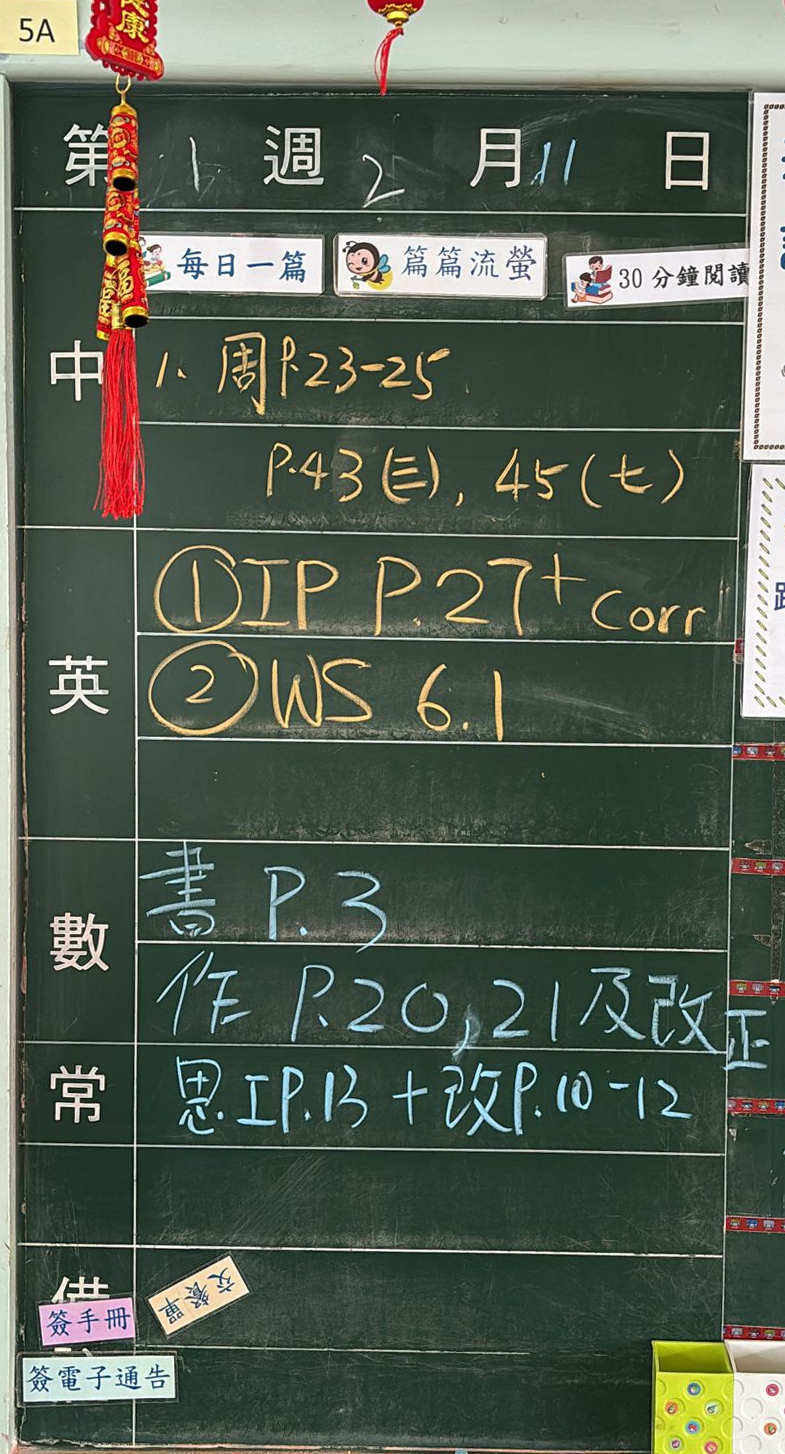 5A
康
第1週2月11日
每日一篇 篇篇流螢 30分鐘閱讀
中 1、周P.23-25
P.43(三),45(七)
英 ①IP P.27+corr
②WS 6.1
數 書 P.3
作 P.20,21及改正
常 思IP.13+改P.10-12
備
交餐單
簽手冊
簽電子通告